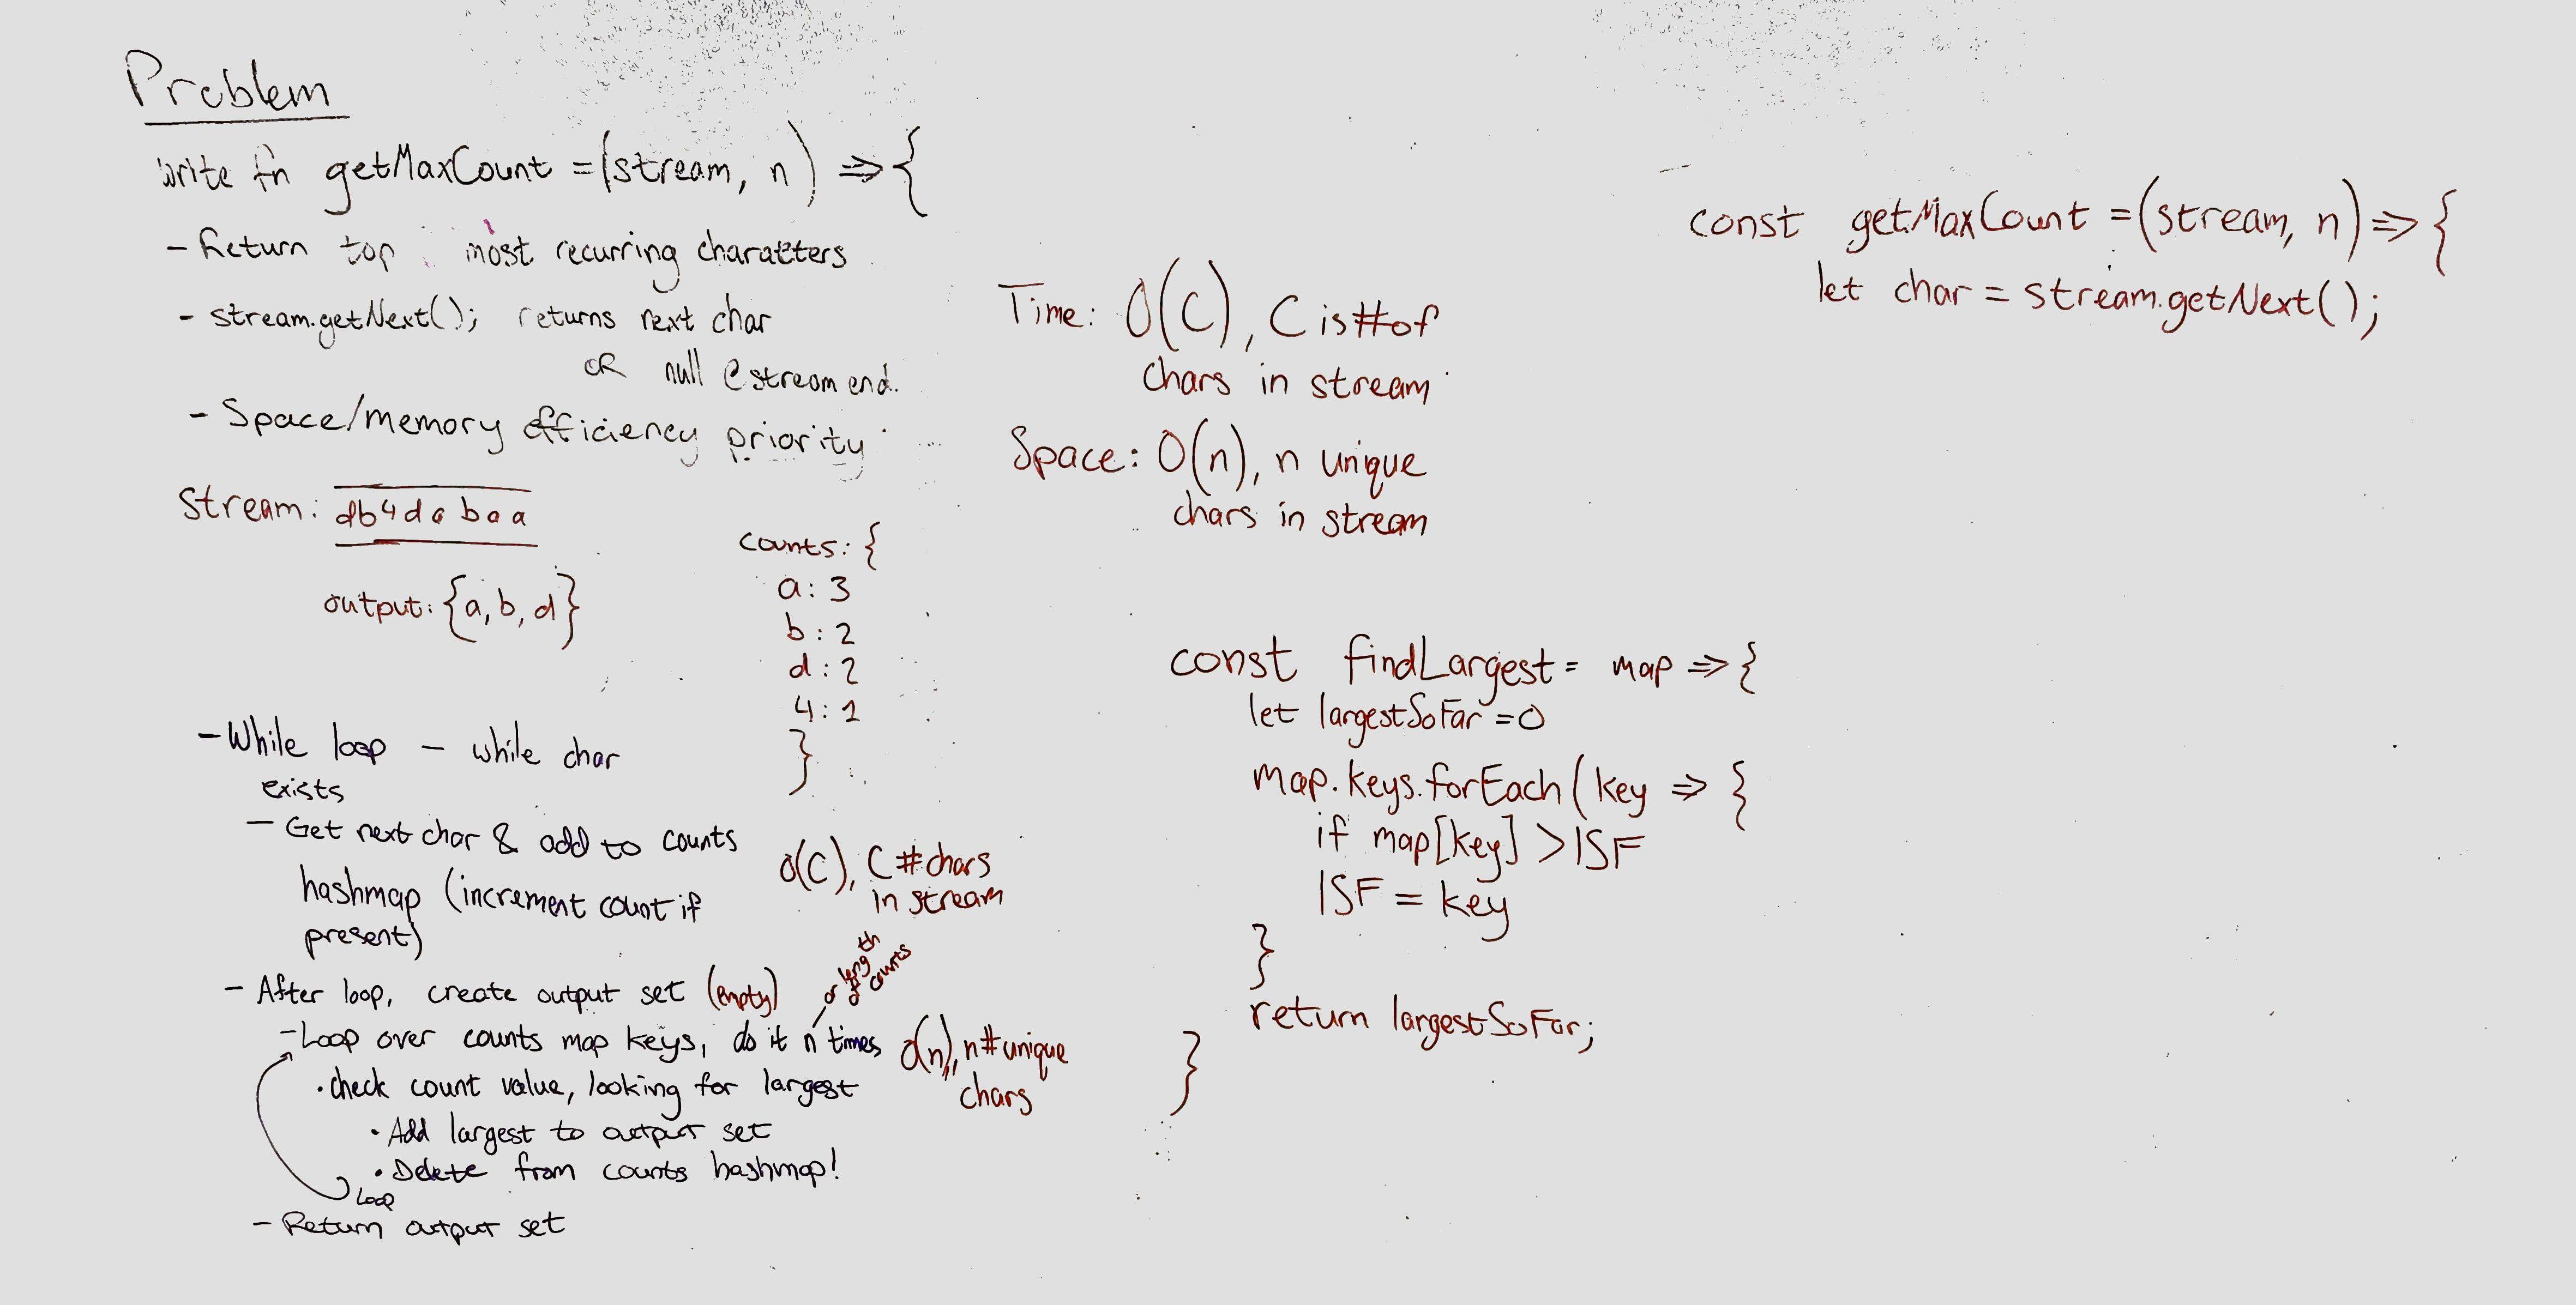 Problem
Write fn getMaxCount = (stream, n) => {
- Return top most recurring characters
- stream.getNext(); returns next char
OR null @ stream end.
- Space/memory efficiency priority
Stream: db4dabaa
output: {a, b, d}
counts: {
a: 3
b: 2
d: 2
4: 1
}
- While loop - while char
exists
- Get next char & add to counts
hashmap (increment count if
present)
O(C), C # chars
in stream
- After loop, create output set (empty)
or length
of counts
- Loop over counts map keys, do it n times
O(n), n # unique
chars
• check count value, looking for largest
• Add largest to output set
• Delete from counts hashmap!
Loop
- Return output set
Time: O(C), C is # of
chars in stream
Space: O(n), n unique
chars in stream
const findLargest = map => {
let largestSoFar = 0
map.keys.forEach(key => {
if map[key] > lSF
lSF = key
}
return largestSoFar;
}
const getMaxCount = (stream, n) => {
let char = stream.getNext();